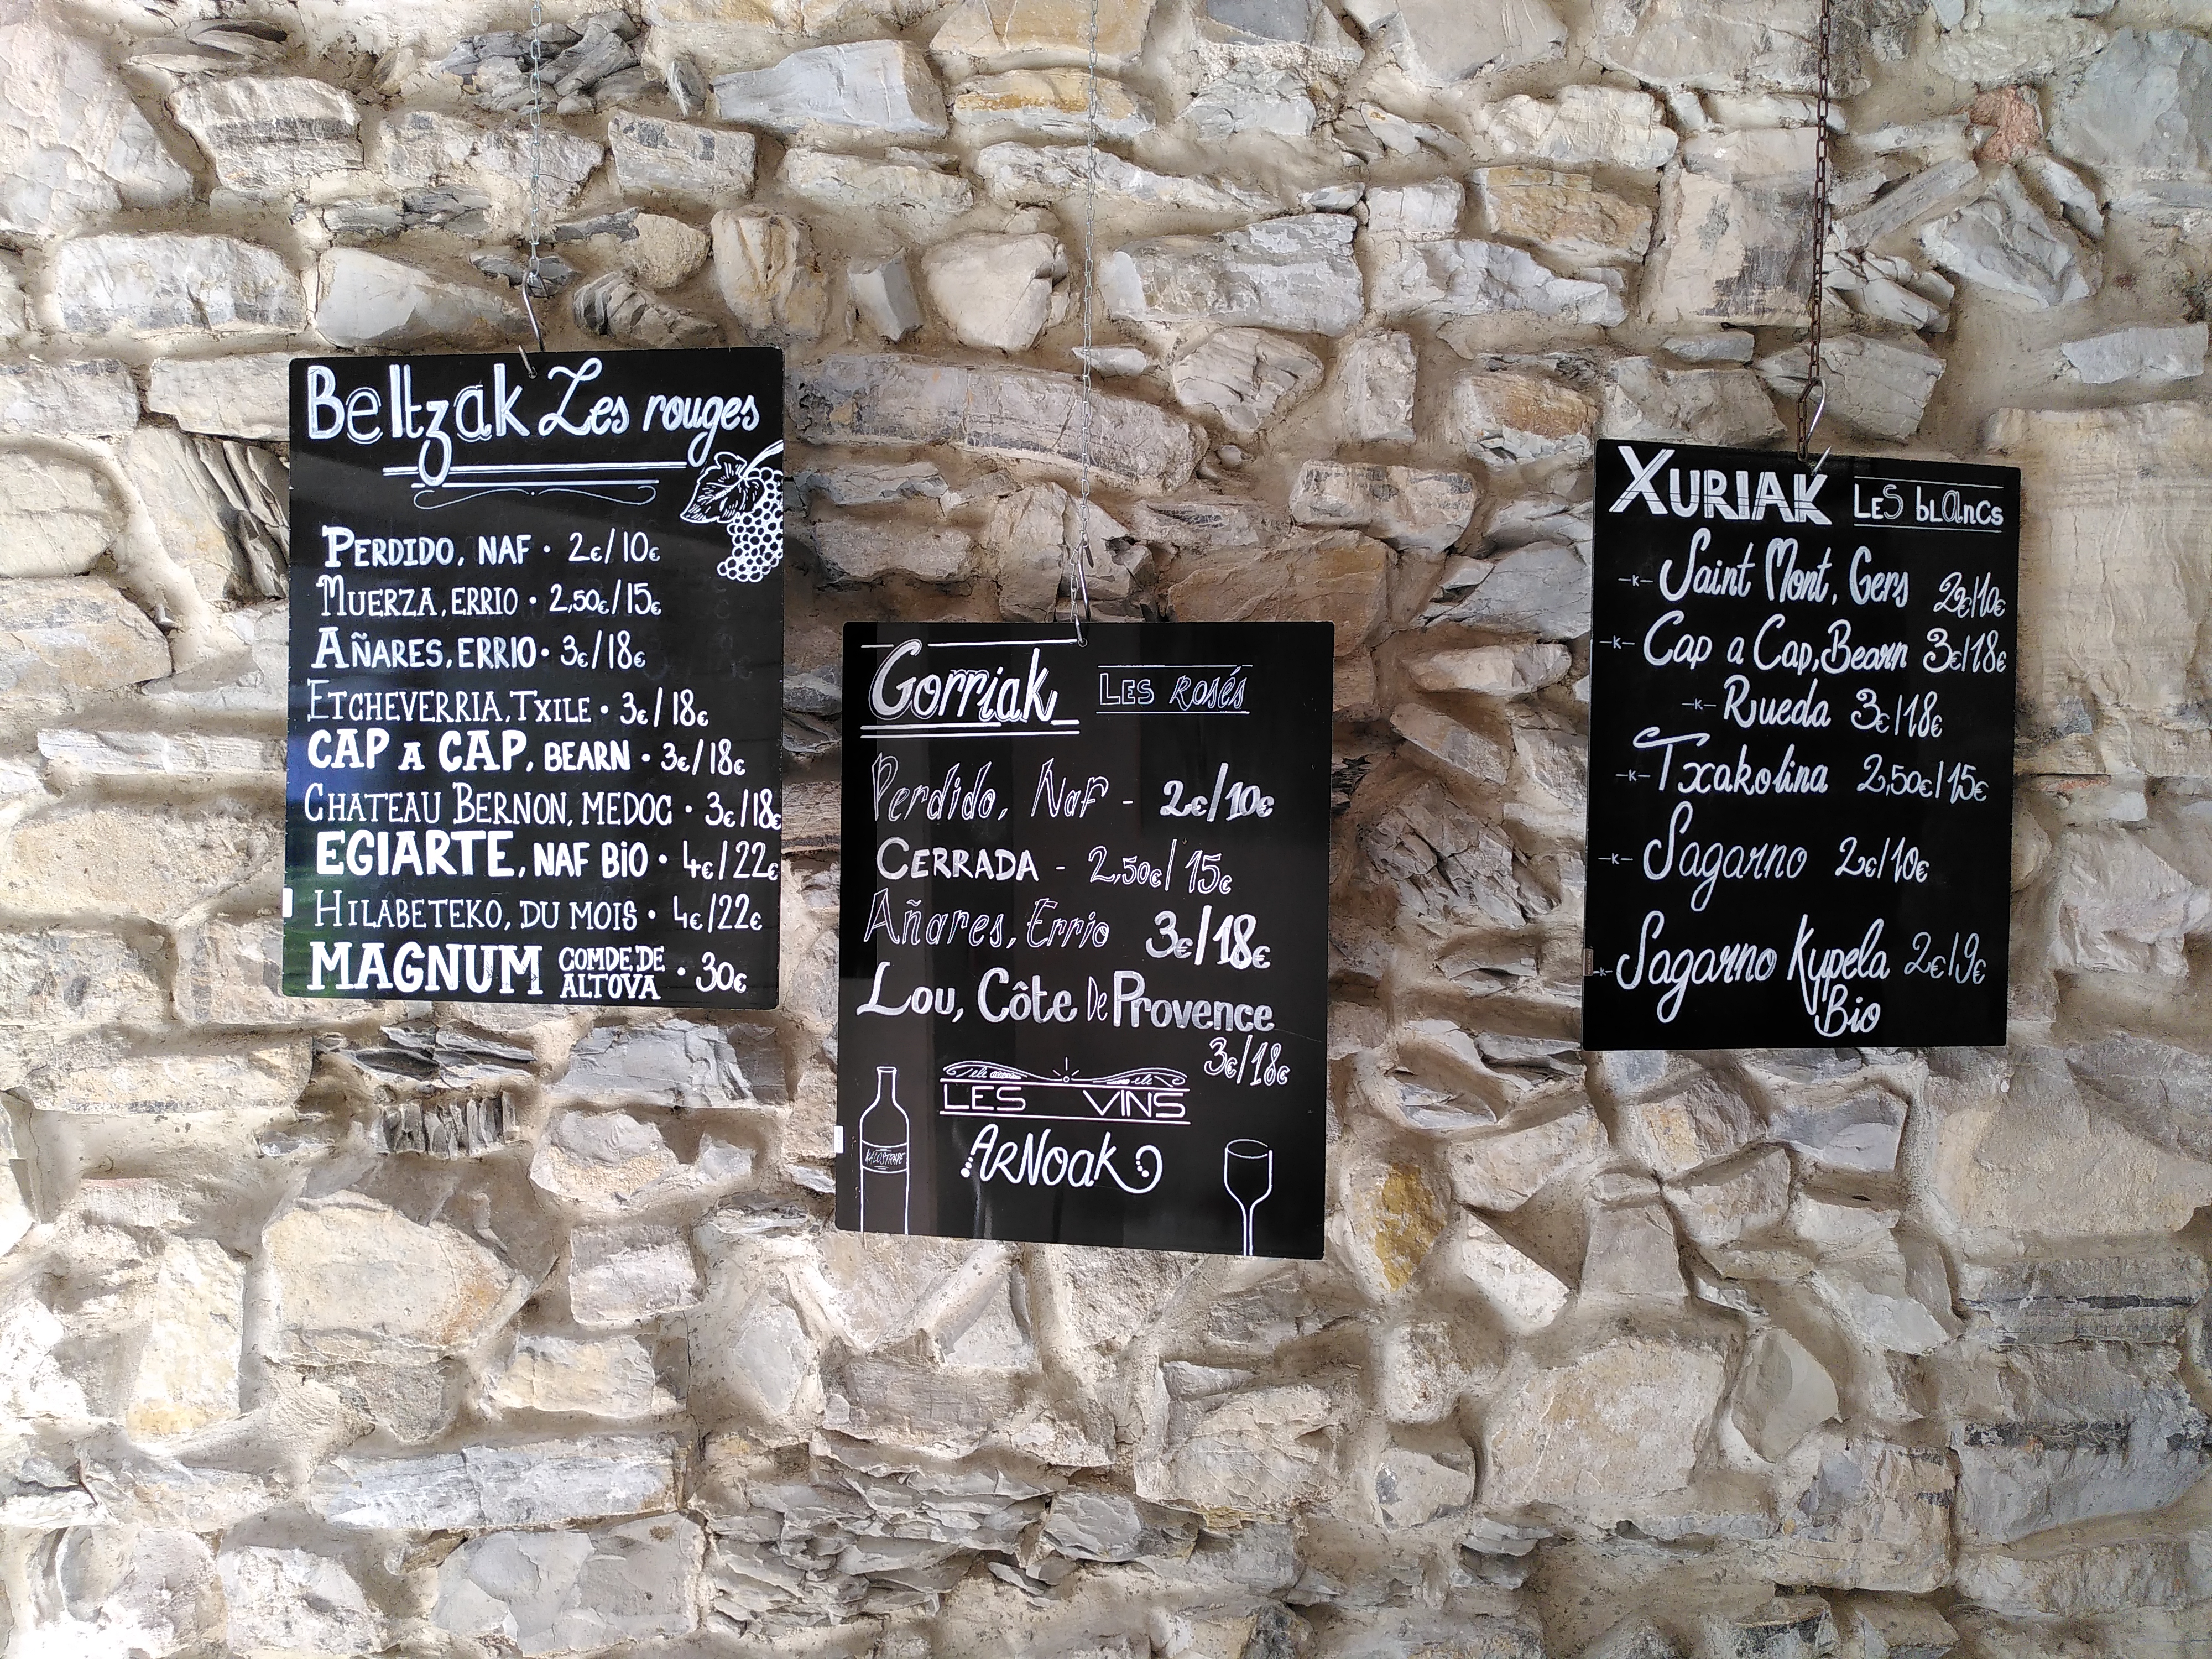 Beltzak Les rouges
PERDIDO, NAF · 2€/10€
MUERZA, ERRIO · 2,50€/15€
AÑARES, ERRIO · 3€/18€
ETCHEVERRIA, TXILE · 3€/18€
CAP A CAP, BEARN · 3€/18€
CHATEAU BERNON, MEDOC · 3€/18€
EGIARTE, NAF BiO · 4€/22€
HILABETEKO, DU MOIS · 4€/22€
MAGNUM COMDE DE ALTOVA · 30€
Gorriak LES ROSÉS
Perdido, Naf - 2€/10€
CERRADA - 2,50€/15€
Añares, Errio 3€/18€
Lou, Côte De Provence
3€/18€
LES VINS
ARNoak
XURIAK LES bLancs
-K- Saint Mont, Gers 2€/10€
-K- Cap a Cap, Bearn 3€/18€
-K- Rueda 3€/18€
-K- Txakolina 2,50€/15€
-K- Sagarno 2€/10€
-K- Sagarno Kypela 2€/9€
Bio